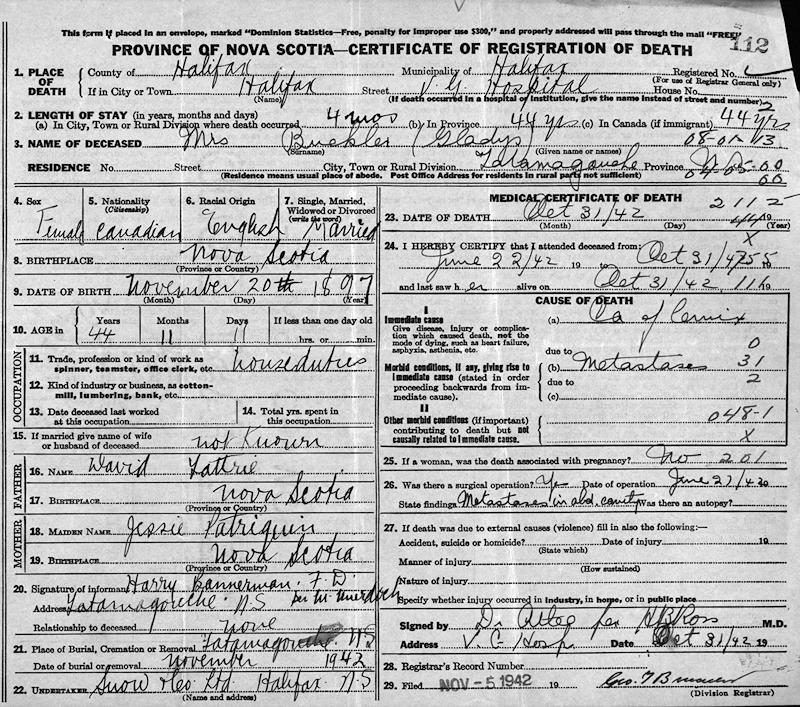 This form if placed in an envelope, marked "Dominion Statistics—Free, penalty for improper use $300," and properly addressed will pass through the mail "FREE"
112
PROVINCE OF NOVA SCOTIA—CERTIFICATE OF REGISTRATION OF DEATH
1. PLACE OF DEATH County of Halifax Municipality of Halifax Registered No.
(For use of Registrar General only)
If in City or Town Halifax Street V. G. Hospital House No.
(Name) (If death occurred in a hospital or institution, give the name instead of street and number)
2. LENGTH OF STAY (in years, months and days)
(a) In City, Town or Rural Division where death occurred 4 mos (b) In Province 44 yrs (c) In Canada (if immigrant) 44 yrs
3. NAME OF DECEASED Mrs Buckler (Gladys)
(Surname) (Given name or names)
RESIDENCE No. Street City, Town or Rural Division Tatamagouche Province N.S.
(Residence means usual place of abode. Post Office Address for residents in rural parts not sufficient)
4. Sex 5. Nationality (Citizenship) 6. Racial Origin 7. Single, Married, Widowed or Divorced (write the word)
Female Canadian English Married
8. BIRTHPLACE Nova Scotia
(Province or Country)
9. DATE OF BIRTH November 20th 1897
(Month) (Day) (Year)
10. AGE in Years Months Days If less than one day old
44 11 11 hrs. or min.
OCCUPATION
11. Trade, profession or kind of work as spinner, teamster, office clerk, etc. houseduties
12. Kind of industry or business, as cotton-mill, lumbering, bank, etc.
13. Date deceased last worked at this occupation 14. Total yrs. spent in this occupation
15. If married give name of wife or husband of deceased not Known
FATHER
16. NAME David Tattrie
17. BIRTHPLACE Nova Scotia
(Province or Country)
MOTHER
18. MAIDEN NAME Jessie Patriquin
19. BIRTHPLACE Nova Scotia
(Province or Country)
20. Signature of informant Harry Bannerman F.D.
Address Tatamagouche N.S
Relationship to deceased none
21. Place of Burial, Cremation or Removal Tatamagouche N S
Date of burial or removal November 1942
22. UNDERTAKER Snow & Co Ltd Halifax N.S
(Name and address)
MEDICAL CERTIFICATE OF DEATH
23. DATE OF DEATH Oct 31/42 19
(Month) (Day)
24. I HEREBY CERTIFY that I attended deceased from:
June 22/42 19 to Oct 31/42
and last saw her alive on Oct 31/42 19
CAUSE OF DEATH
I
Immediate cause
Give disease, injury or complication which caused death, not the mode of dying, such as heart failure, asphyxia, asthenia, etc.
(a) Ca of Cervix
due to
Morbid conditions, if any, giving rise to immediate cause (stated in order proceeding backwards from immediate cause).
(b) Metastases 31
due to 2
(c)
II
Other morbid conditions (if important) contributing to death but not causally related to immediate cause.
048-1
X
25. If a woman, was the death associated with pregnancy? No 201
26. Was there a surgical operation? Yes Date of operation June 27/42
State findings Metastases in abd. cavity Was there an autopsy?
27. If death was due to external causes (violence) fill in also the following:—
Accident, suicide or homicide? Date of injury 19
(State which)
Manner of injury
(How sustained)
Nature of injury
Specify whether injury occurred in industry, in home, or in public place
Signed by Dr Atlee per H B Ross M.D.
Address V. G. Hosp. Date Oct 31/42 19
28. Registrar's Record Number
29. Filed NOV - 5 1942 19
(Division Registrar)